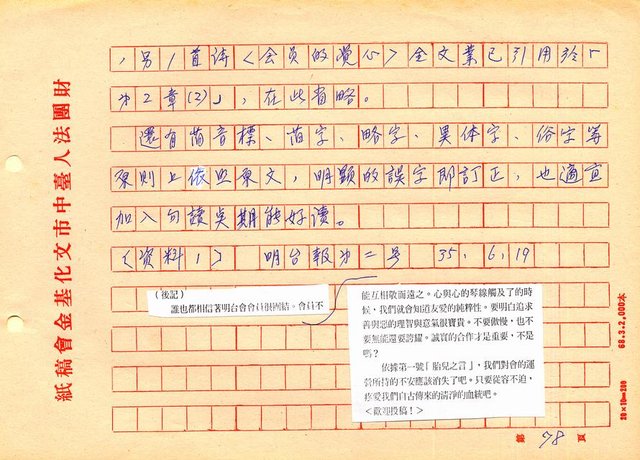 財團法人臺中市文化基金會稿紙
，另1首詩＜会员的赏心＞全文業已引用於「
第2章(2)」，在此省略。
還有萄音標、萄字、略字、異体字、俗字等
原則上依照原文，明顯的誤字即訂正，也適宜
加入句讀吴期能好读。
＜資料1＞ 明台報第二号 35.6.19
（後記）
誰也都相信著明台會會員很團結。會員不
能互相敬而遠之。心與心的琴線觸及了的時
候，我們就會知道友愛的純粹性。要明白追求
善與惡的理智與意氣很寶貴。不要傲慢，也不
要無能還要誇耀。誠實的合作才是重要，不是
嗎？
依據第一號「胎兒之言」，我們對會的運
營所持的不安應該消失了吧。只要從容不迫，
疼愛我們自古傳來的清淨的血統吧。
＜歡迎投稿！＞
68.3.2,000本
20×10＝200
第 78 頁